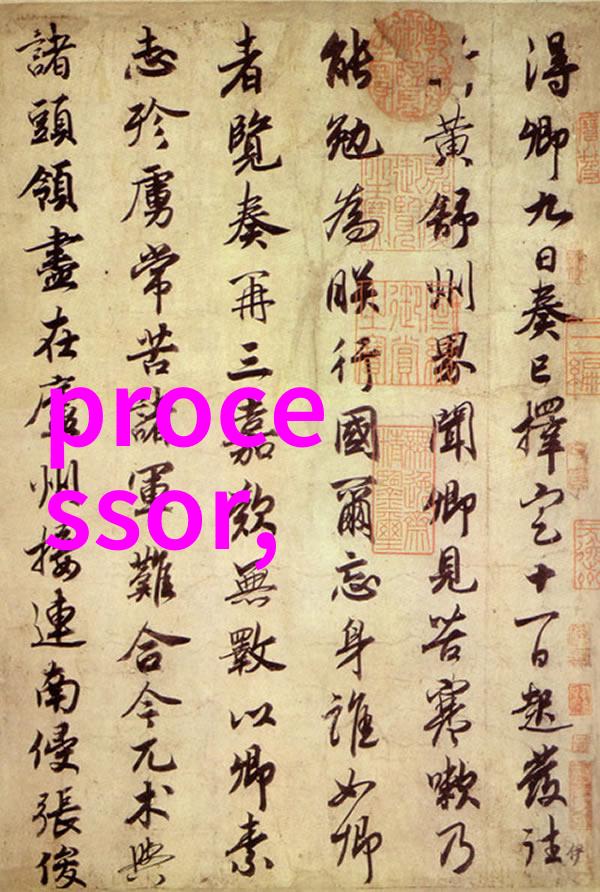 得卿九日奏已擇定十一日起發往
黄舒州界聞卿見苦寒嗽乃
能勉為朕行國爾忘身誰如卿
者覽奏再三嘉歎無斁以卿素
志殄虜常苦諸軍難合今兀术與
諸頭領盡在廬州接連南侵張俊
proce
ssor,